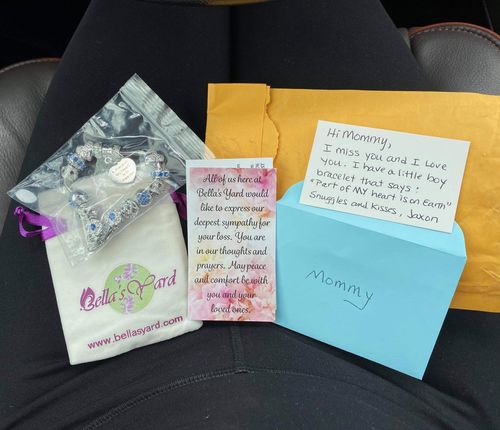 Hi Mommy,
I miss you and I Love
you. I have a little boy
bracelet that says:
"Part of MY heart is on Earth"
Snuggles and kisses, Jaxon
All of us here at
Bella's Yard would
like to express our
deepest sympathy for
your loss. You are
in our thoughts and
prayers. May peace
and comfort be with
you and your
loved ones.
Mommy
Bella's Yard
www.bellasyard.com